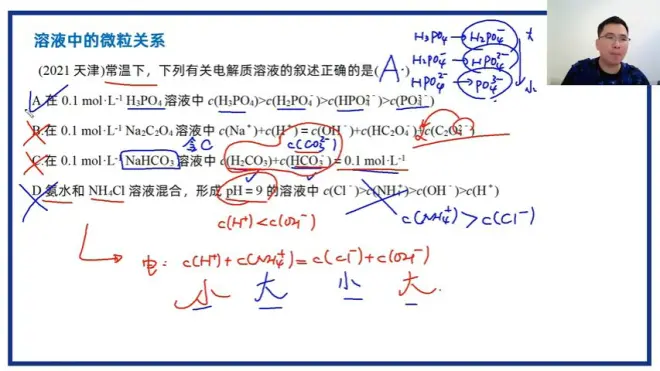 溶液中的微粒关系
(2021 天津)常温下，下列有关电解质溶液的叙述正确的是( A. )
A.在 0.1 mol·L⁻¹ H₃PO₄ 溶液中 c(H₃PO₄)>c(H₂PO₄⁻)>c(HPO₄²⁻)>c(PO₄³⁻)
B.在 0.1 mol·L⁻¹ Na₂C₂O₄ 溶液中 c(Na⁺)+c(H⁺)=c(OH⁻)+c(HC₂O₄⁻)+c(C₂O₄²⁻)
C.在 0.1 mol·L⁻¹ NaHCO₃ 溶液中 c(H₂CO₃)+c(HCO₃⁻)=0.1 mol·L⁻¹
D.氨水和 NH₄Cl 溶液混合，形成 pH=9 的溶液中 c(Cl⁻)>c(NH₄⁺)>c(OH⁻)>c(H⁺)
H₃PO₄→H₂PO₄⁻ 大
H₂PO₄⁻→HPO₄²⁻
HPO₄²⁻→PO₄³⁻ 小
2
含C
c(CO₃²⁻)
c(H⁺)<c(OH⁻)
c(NH₄⁺)>c(Cl⁻)
电: c(H⁺)+c(NH₄⁺)=c(Cl⁻)+c(OH⁻)
小 大 小 大.